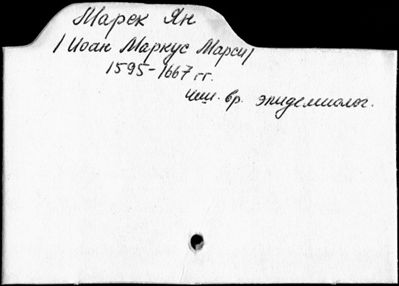 Марек Ян
/Иоан Маркус Марси/
1595-1667 гг.
чеш. вр. эпидемиолог.